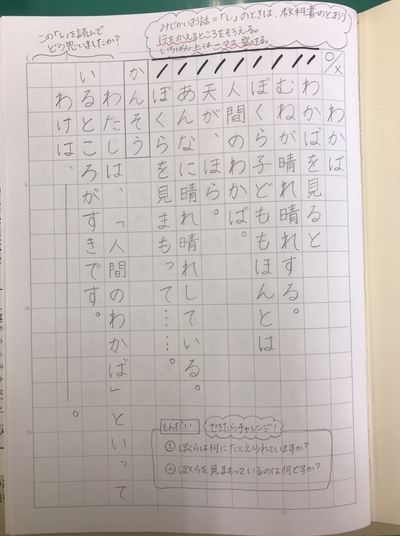 みじかいお話=「し」のときは、教科書のとおり
行をかえるところをそろえる。
いちばん上は一マス空ける。
○/×
わかば
わかばを見ると
むねが晴れ晴れする。
ぼくら子どももほんとは
人間のわかば。
天が、ほら。
あんなに晴れ晴れしている。
ぼくらを見まもって……。
かんそう
わたしは、「人間のわかば」といって
いるところがすきです。
わけは、――――。
この「し」を読んで
どう思いましたか?
もんだい できたらチャレンジ!
①ぼくらは何にたとえられていますか?
②ぼくらを見まもっているのは何ですか?